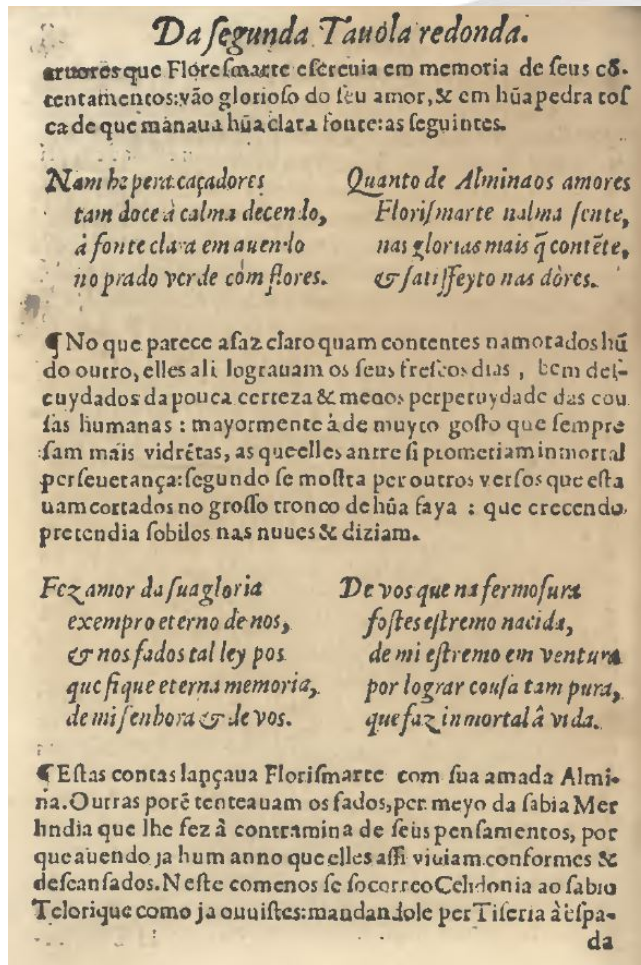 Da ſegunda Tauola redonda.
aruores que Floreſmarte eſcreuia em memoria de ſeus cõ-
tentamentos: vão glorioſo do ſeu amor, & em hũa pedra toſ
ca de que mànaua hũa clara fonte: as ſeguintes.
Nam he pera caçadores
tam doce à calma decendo,
à fonte clara em auendo
no prado verde com flores.
Quanto de Alminaos amores
Floriſmarte nalma ſente,
nas glorias mais q̃ contẽte,
& ſatiſfeyto nas dòres.
¶ No que parece aſaz claro quam contentes namorados hũ
do outro, elles ali lograuam os ſeus freſcos dias, bem deſ-
cuydados da pouca certeza & menos perpetuydade das cou
ſas humanas: mayormente à de muyto goſto que ſempre
ſam mais vidrẽtas, as que elles antre ſi prometiam inmortal
perſeuerança: ſegundo ſe moſtra per outros verſos que eſta
uam cortados no groſſo tronco de hũa faya: que crecendo
pretendia ſobilos nas nuues & diziam.
Fez amor da ſua gloria
exempro eterno de nos,
& nos fados tal ley pos
que fique eterna memoria,
de mi ſenhora & de vos.
De vos que na fermoſura
foſtes eſtremo nacida,
de mi eſtremo em ventura
por lograr couſa tam pura,
que faz inmortal â vida.
¶ Eſtas contas lançaua Floriſmarte com ſua amada Almi-
na. Outras porẽ tenteauam os fados, per meyo da ſabia Mer
lindia que lhe fez â contramina de ſeus penſamentos, por
que auendo ja hum anno que elles aſſi viuiam conformes &
deſcanſados. Neſte comenos ſe ſocorreo Celidonia ao ſabio
Telorique como ja ouuiſtes: mandandole per Tiſeria à eſpa-
da